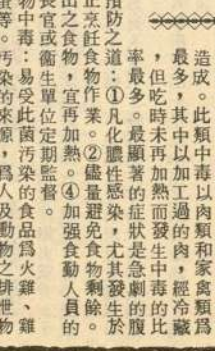 造成。此類中毒以肉類和家禽類爲
最多，其中以加工過的肉，經冷藏
，但吃時未再加熱而發生中毒的比
率最多。最顯著的症狀是急劇的腹
預防之道：①凡化膿性感染，尤其發生於
止烹飪食物作業。②儘量避免食物剩餘。
出之食物，宜再加熱。④加强食勤人員的
長官或衞生單位定期監督。
物中毒：易受此菌汚染的食品爲火雞、雞
蛋等。汚染的來源，爲人及動物之排泄物